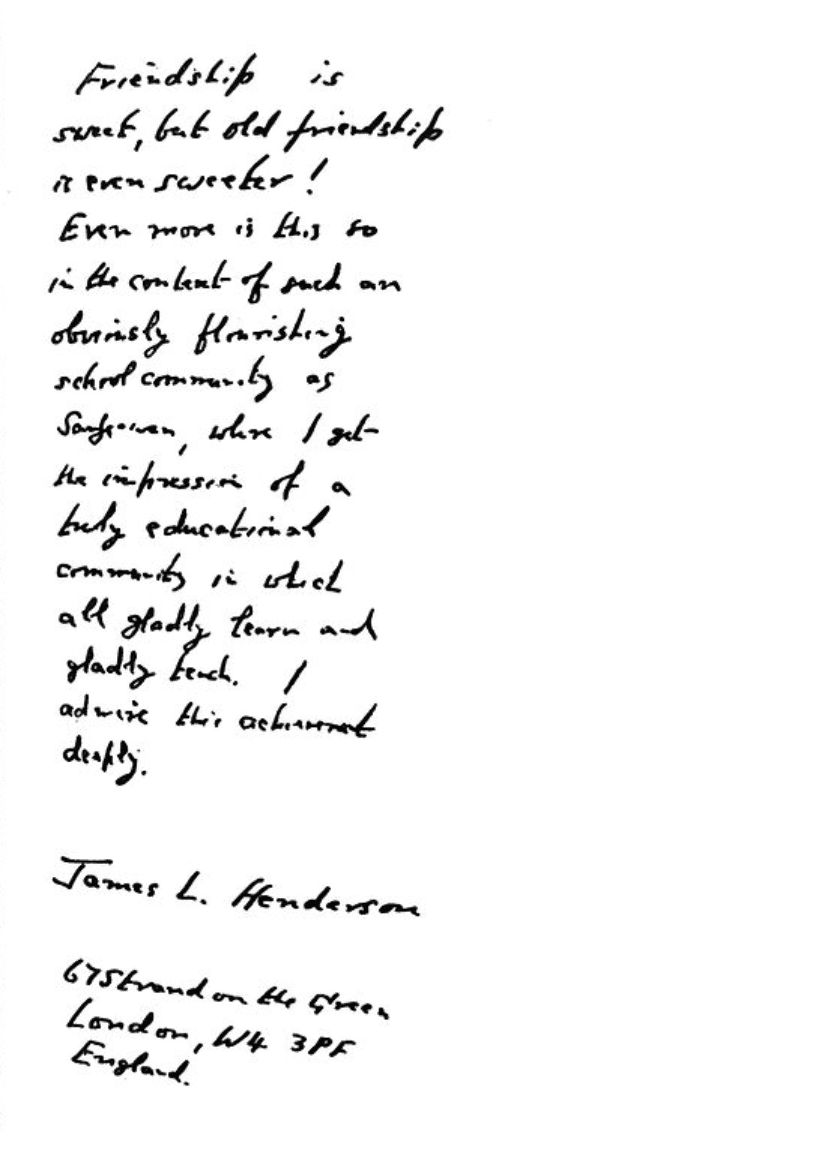 Friendship is
sweet, but old friendship
is even sweeter!
Even more is this so
in the context of such an
obviously flourishing
school community as
where I get
the impression of a
truly educational
community in which
all gladly learn and
gladly teach. I
admire this achievement
deeply.
James L. Henderson
67 Strand on the Green
London, W4 3PF
England.